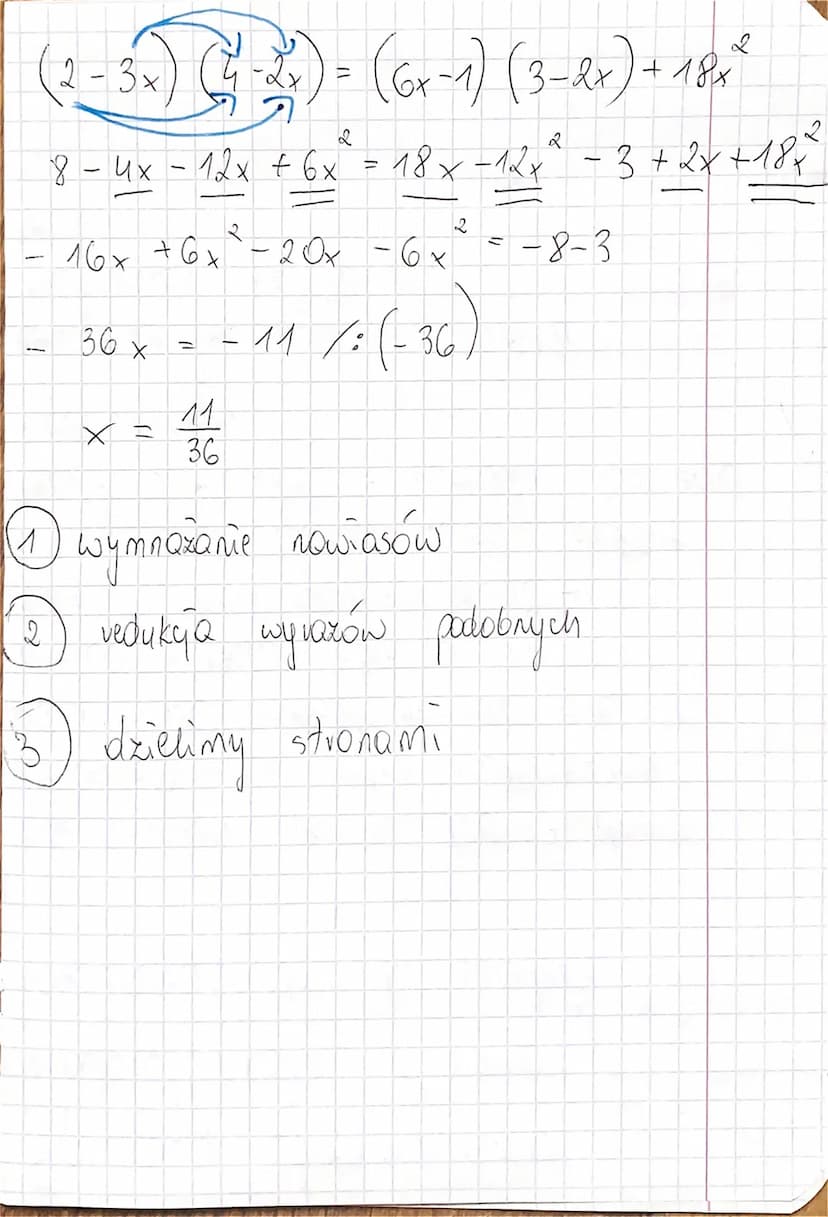 (2 - 3x) (4 - 2x) = (6x - 1) (3 - 2x) + 18x²
8 - 4x - 12x + 6x² = 18x - 12x² - 3 + 2x + 18x²
- 16x + 6x² - 20x - 6x² = -8 - 3
- 36x = - 11 /: (- 36)
x = 11/36
1 wymnażanie nawiasów
2 redukcja wyrazów podobnych
3 dzielimy stronami